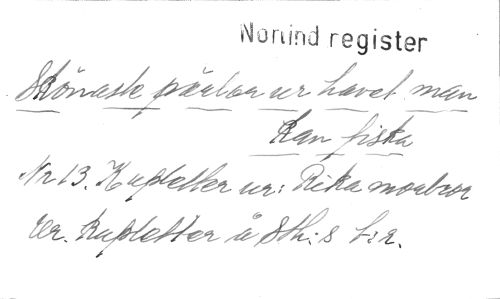 Nomind register
Skönaste pärlor ur havet man
kan fiska
Nr 13. Kupletter ur: Rika morbror
Ur. Kupletter å Sth:s t:r.